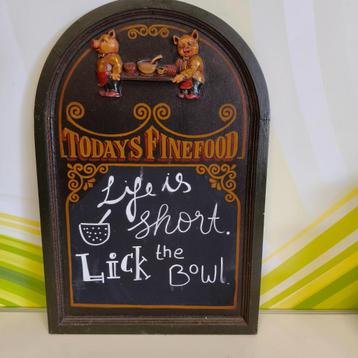 TODAYS FINEFOOD
Life is
short.
Lick the
Bowl.